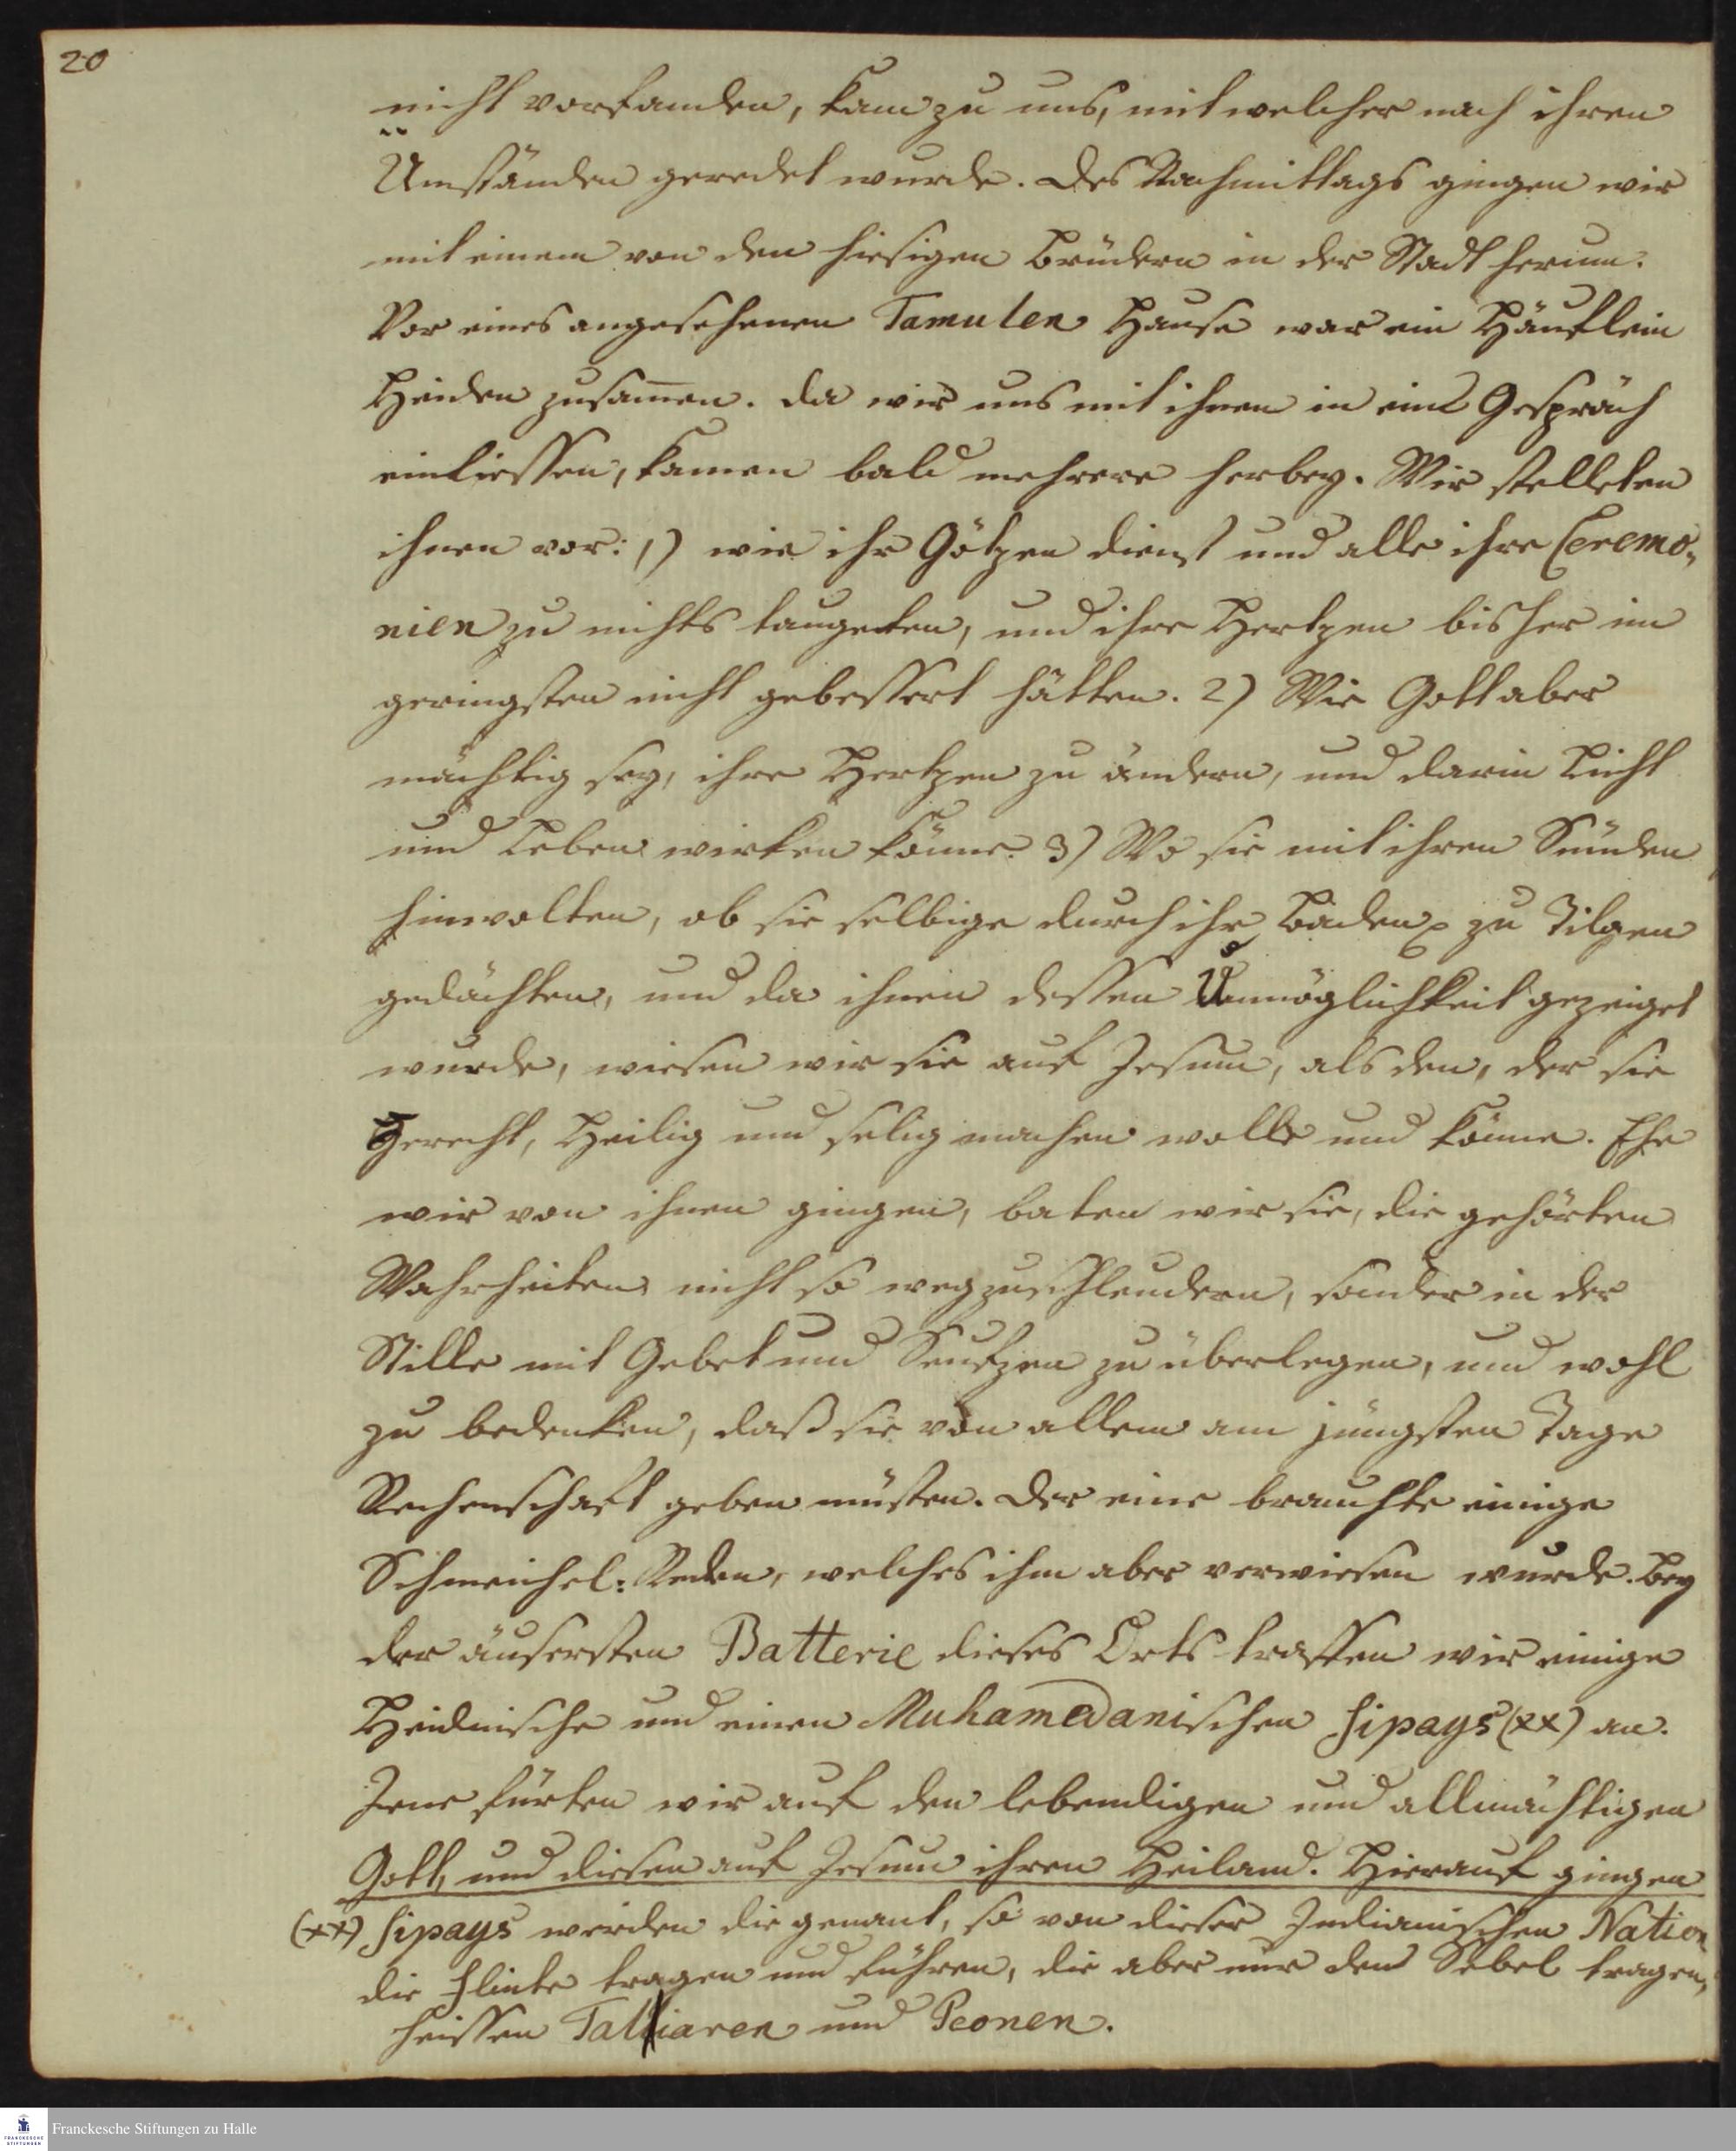 20
nicht vorfanden, kam zu uns, mit welcher nach ihren
Umständen geredet wurde. Des Nachmittags gingen wir
mit einem von den hiesigen Brüdern in der Stadt herum.
Vor eines angesehenen Tamulen Hause war ein Häuflein
Heiden zusam̄en. da wir uns mit ihnen in ein Gespräch
einliessen, kamen bald mehrere herbey. Wir stelleten
ihnen vor: 1) wie ihr Götzen dienst und alle ihre Ceremo„
nien zu nichts taugeten, und ihre Hertzen bisher im
geringsten nicht gebessert hätten. 2) Wie Gott aber
mächtig sey, ihre Hertzen zu ändern, und darin Licht
und Leben wirken könne. 3) Wo sie mit ihren Sünden
hinwolten, ob sie selbige durch ihr Baden zu Tilgen
gedächten, und da ihnen dessen Unmöglichkeit gezeiget
wurde, wiesen wir sie auf Jesum, als den, der sie
Gerecht, Heilig und selig machen wolle und könne. Ehe
wir von ihnen gingen, baten wir sie, die gehörten
Wahrheiten nicht so wegzuschleudern, sonder in der
Stille mit Gebet und Seufzen zu überlegen, und wohl
zu bedenken, daß sie von allem am jüngsten Tage
Rechenschaft geben müsten. Der eine brauchte einige
Schmeichel: Reden, welches ihm aber verwiesen wurde. Bey
der äusersten Batterie dieses Orts traffen wir einige
Heidnische und einen Muhamedanischen Sipays (xx) an.
Jene fürten wir auf den lebendigen und allmächtigen
Gott, und diesen auf Jesum ihren Heiland. Hierauf gingen
(xx) Sipays werden die genant, so von dieser Indianischen Nation
die Flinte tragen und führen, die aber nur den Sebel tragen,
heissen Talliaren und Peonen.
Franckesche Stiftungen zu Halle
FRANCKESCHE
STIFTUNGEN